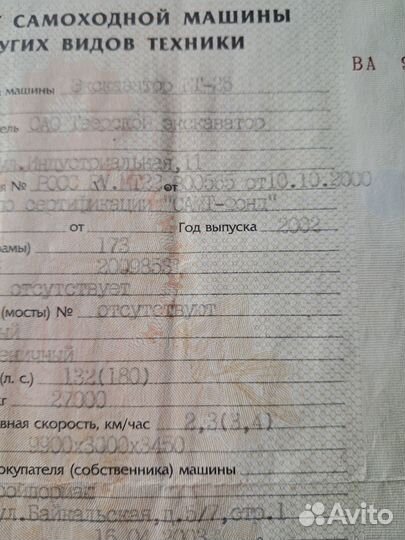 САМОХОДНОЙ МАШИНЫ
УГИХ ВИДОВ ТЕХНИКИ
ВА 9
машины Экскаватор ЕТ-25
ель ОАО Тверской экскаватор
ул.Индустриальная,11
№ РОСС RV.МТ22. от10.10.2000
по сертификации "САМТ-Фонд"
от Год выпуска 2002
рамы) 173
отсутствует
(мосты) № отсутствуют
ый
еничный
(л. с.) 132(180)
кг 27000
вная скорость, км/час 2,3(3,4)
9900х3000х3450
окупателя (собственника) машины
ройдормаш
ул.Байкальская,д.5/7,стр.1
Avito